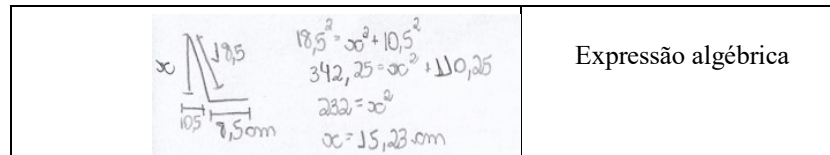 x
18,5
10,5
8,5cm
18,5² = x² + 10,5²
342,25 = x² + 110,25
232 = x²
x = 15,23 cm
Expressão algébrica